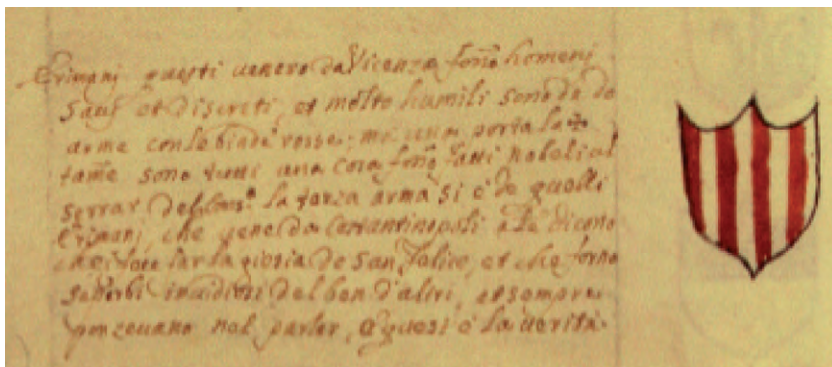 Grimani questi venero da Vicenza fono homeni
savij et discreti, et molto humili sono de do
arme con le biade rosse; ma una porta la ✠
tame sono tutti una cosa fono fatti nobeli al
serrar del la terza arma si è de quelli
Grimani, che vene da Costantinopoli et dicono
che far la giesia de San Felice, et che forno
superbi invidiosi del ben d'altri, et sempre
ponzevano nel parlar, e questi è la verità.